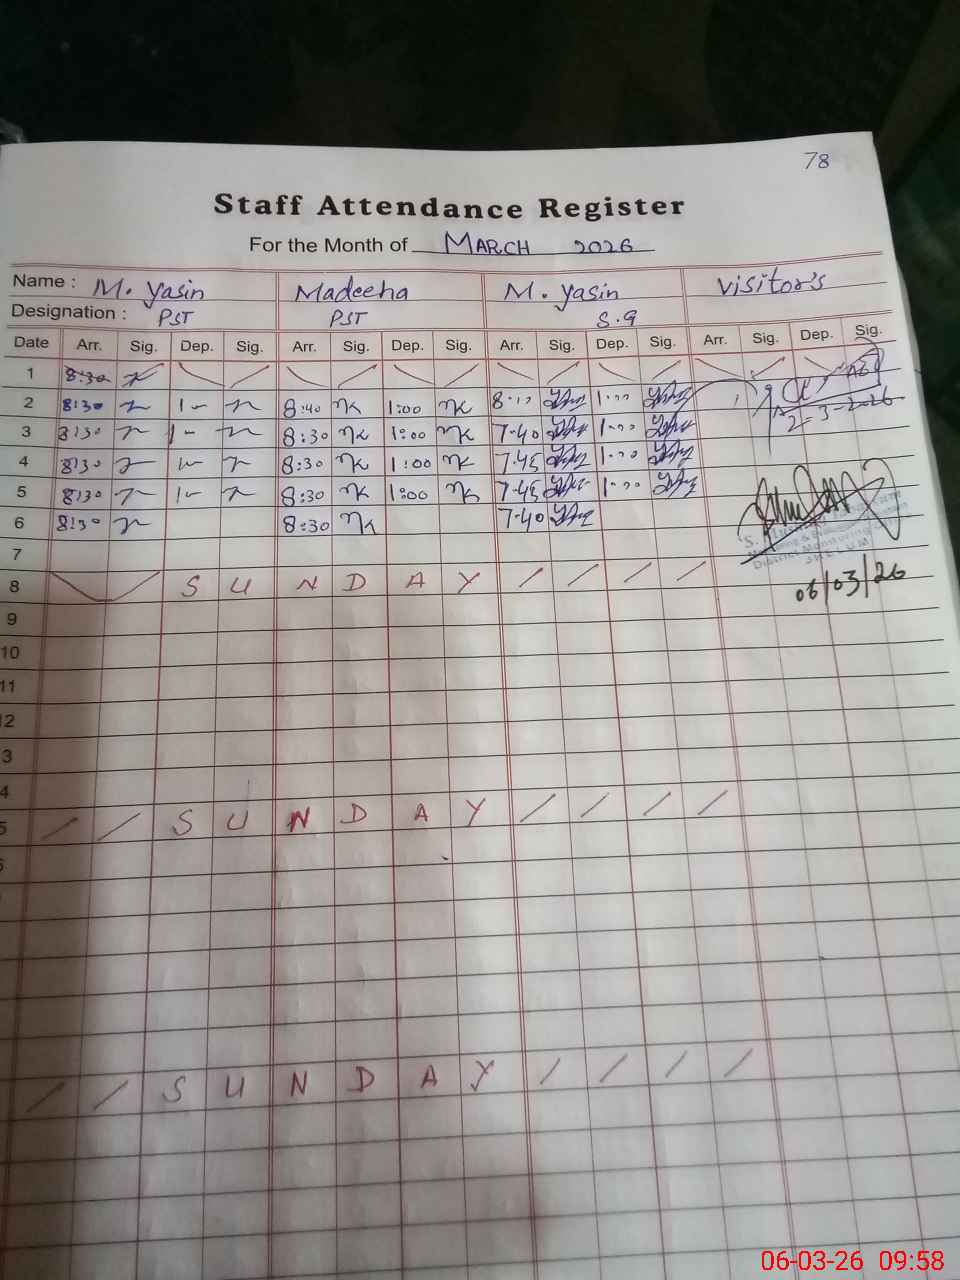 78
Staff Attendance Register
For the Month of MARCH 2026
Name : M. Yasin Madeeha M. Yasin Visitor's
Designation : PST PST S.G
Date Arr. Sig. Dep. Sig. Arr. Sig. Dep. Sig. Arr. Sig. Dep. Sig. Arr. Sig. Dep. Sig.
1 8:30
2 8:30 1- 8:40 1:00 8-10 1-00 2-3-2026
3 8:30 1- 8:30 1:00 7-40 1-00
4 8:30 1- 8:30 1:00 7-45 1-00
5 8:30 1- 8:30 1:00 7-45 1-00
6 8:30 8:30 7-40
District Monitoring
7
8 S U N D A Y 06/03/26
9
10
11
12
3
4
5 S U N D A Y
S U N D A Y
06-03-26 09:58